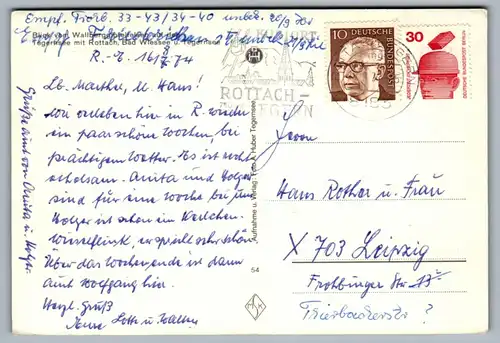 Empf. Tierb. 33-43/34-40
Blick vom Wallberg
Tegernsee mit Rottach, Bad Wiessee u. Tegernsee
R.-E. 16/7/74
Lb. Marthe, u. Hans!
wir erleben hier in R. wieder
ein paar schöne Wochen, bei
prächtigem Wetter. Es ist recht
erholsam. Anita und Holger
sind für eine Woche bei uns
Holger ist schon ein Kerlchen.
Wieselflink, er spielt sehr schön.
Über das Wochenende ist dann
auch Wolfgang hier.
Herzl. Grüß
Eure Lotte u. Walther
Grüße auch von Anita u. Holger
Aufnahme u. Verlag: Foto A. Huber Tegernsee
54
ROTTACH-
EGERN
10
DEUTSCHE BUNDESPOST
30
JEDERZEIT SICHERHEIT
DEUTSCHE BUNDESPOST BERLIN
Herrn
Hans Rother u. Frau
X 703 Leipzig
Frohburger Str. 13
Trierbacherstr ?